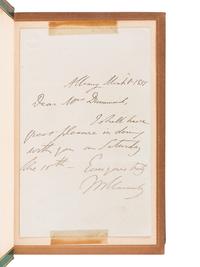 Albany March 8. 1851
Dear Mrs Drummond,
I shall have
great pleasure in dining
with you on Saturday
the 10th — Ever yours truly